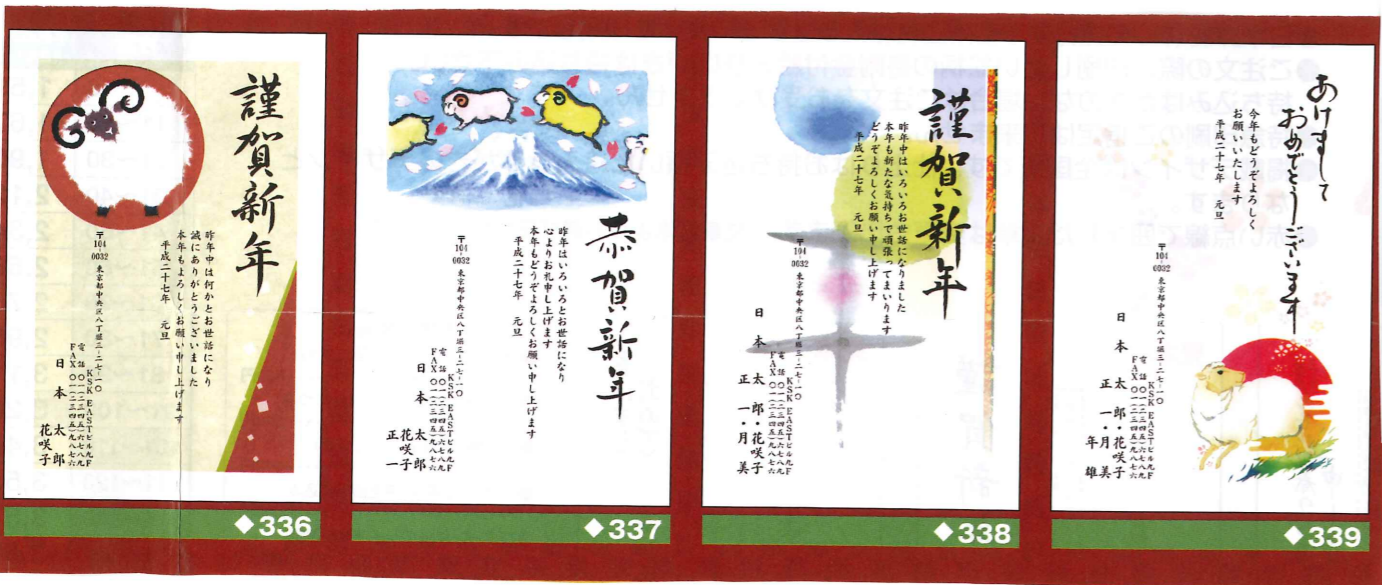 謹賀新年
昨年中は何かとお世話になり
誠にありがとうございました
本年もよろしくお願い申し上げます
平成二十七年　元旦
〒104-0032 東京都中央区八丁堀三-二七-一〇
KSK EASTビル九F
電話 〇一二(三四五)六七八九
FAX 〇一二(三四五)九八七六
日本太郎
花咲子
◆336
恭賀新年
昨年はいろいろとお世話になり
心よりお礼申し上げます
本年もどうぞよろしくお願い申し上げます
平成二十七年　元旦
〒104-0032 東京都中央区八丁堀三-二七-一〇
KSK EASTビル九F
電話 〇一二(三四五)六七八九
FAX 〇一二(三四五)九八七六
日本太郎
花咲子
正一
◆337
謹賀新年
昨年中はいろいろお世話になりました
本年も新たな気持ちで頑張ってまいります
どうぞよろしくお願い申し上げます
平成二十七年　元旦
〒104-0032 東京都中央区八丁堀三-二七-一〇
KSK EASTビル九F
電話 〇一二(三四五)六七八九
FAX 〇一二(三四五)九八七六
日本太郎・花咲子
正一・月美
◆338
あけまして
おめでとうございます
今年もどうぞよろしく
お願いいたします
平成二十七年　元旦
〒104-0032 東京都中央区八丁堀三-二七-一〇
KSK EASTビル九F
電話 〇一二(三四五)六七八九
FAX 〇一二(三四五)九八七六
日本太郎・花咲子
正一・月美
年雄
◆339